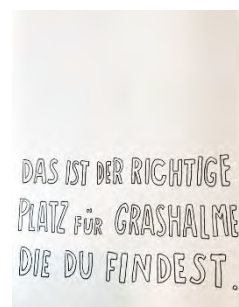 DAS IST DER RICHTIGE
PLATZ FÜR GRASHALME
DIE DU FINDEST.